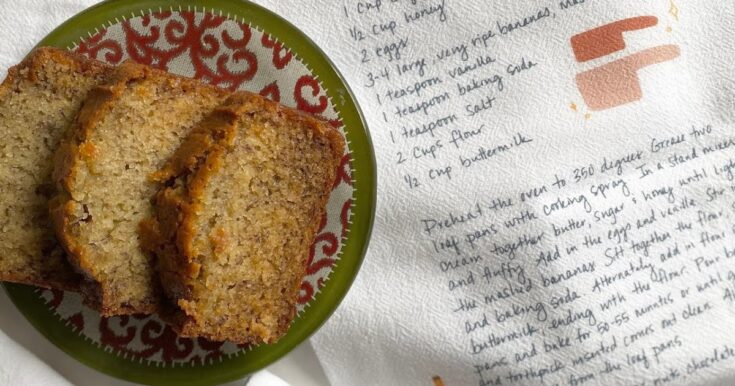 1 cup
½ cup honey
2 eggs
3-4 large, very ripe bananas, mas
1 teaspoon vanilla
1 teaspoon baking soda
1 teaspoon salt
2 cups flour
½ cup buttermilk
Preheat the oven to 350 degrees. Grease two
loaf pans with cooking spray. In a stand mixer
cream together butter, sugar & honey until ligh
and fluffy. Add in the eggs and vanilla. Stir
the mashed bananas. Sift together the flour,
and baking soda. Alternately add in flour
buttermilk, ending with the flour. Pour
pans and bake for 50-55 minutes or until
and toothpick inserted comes out clean.
from the loaf pans
nuts, chocolate